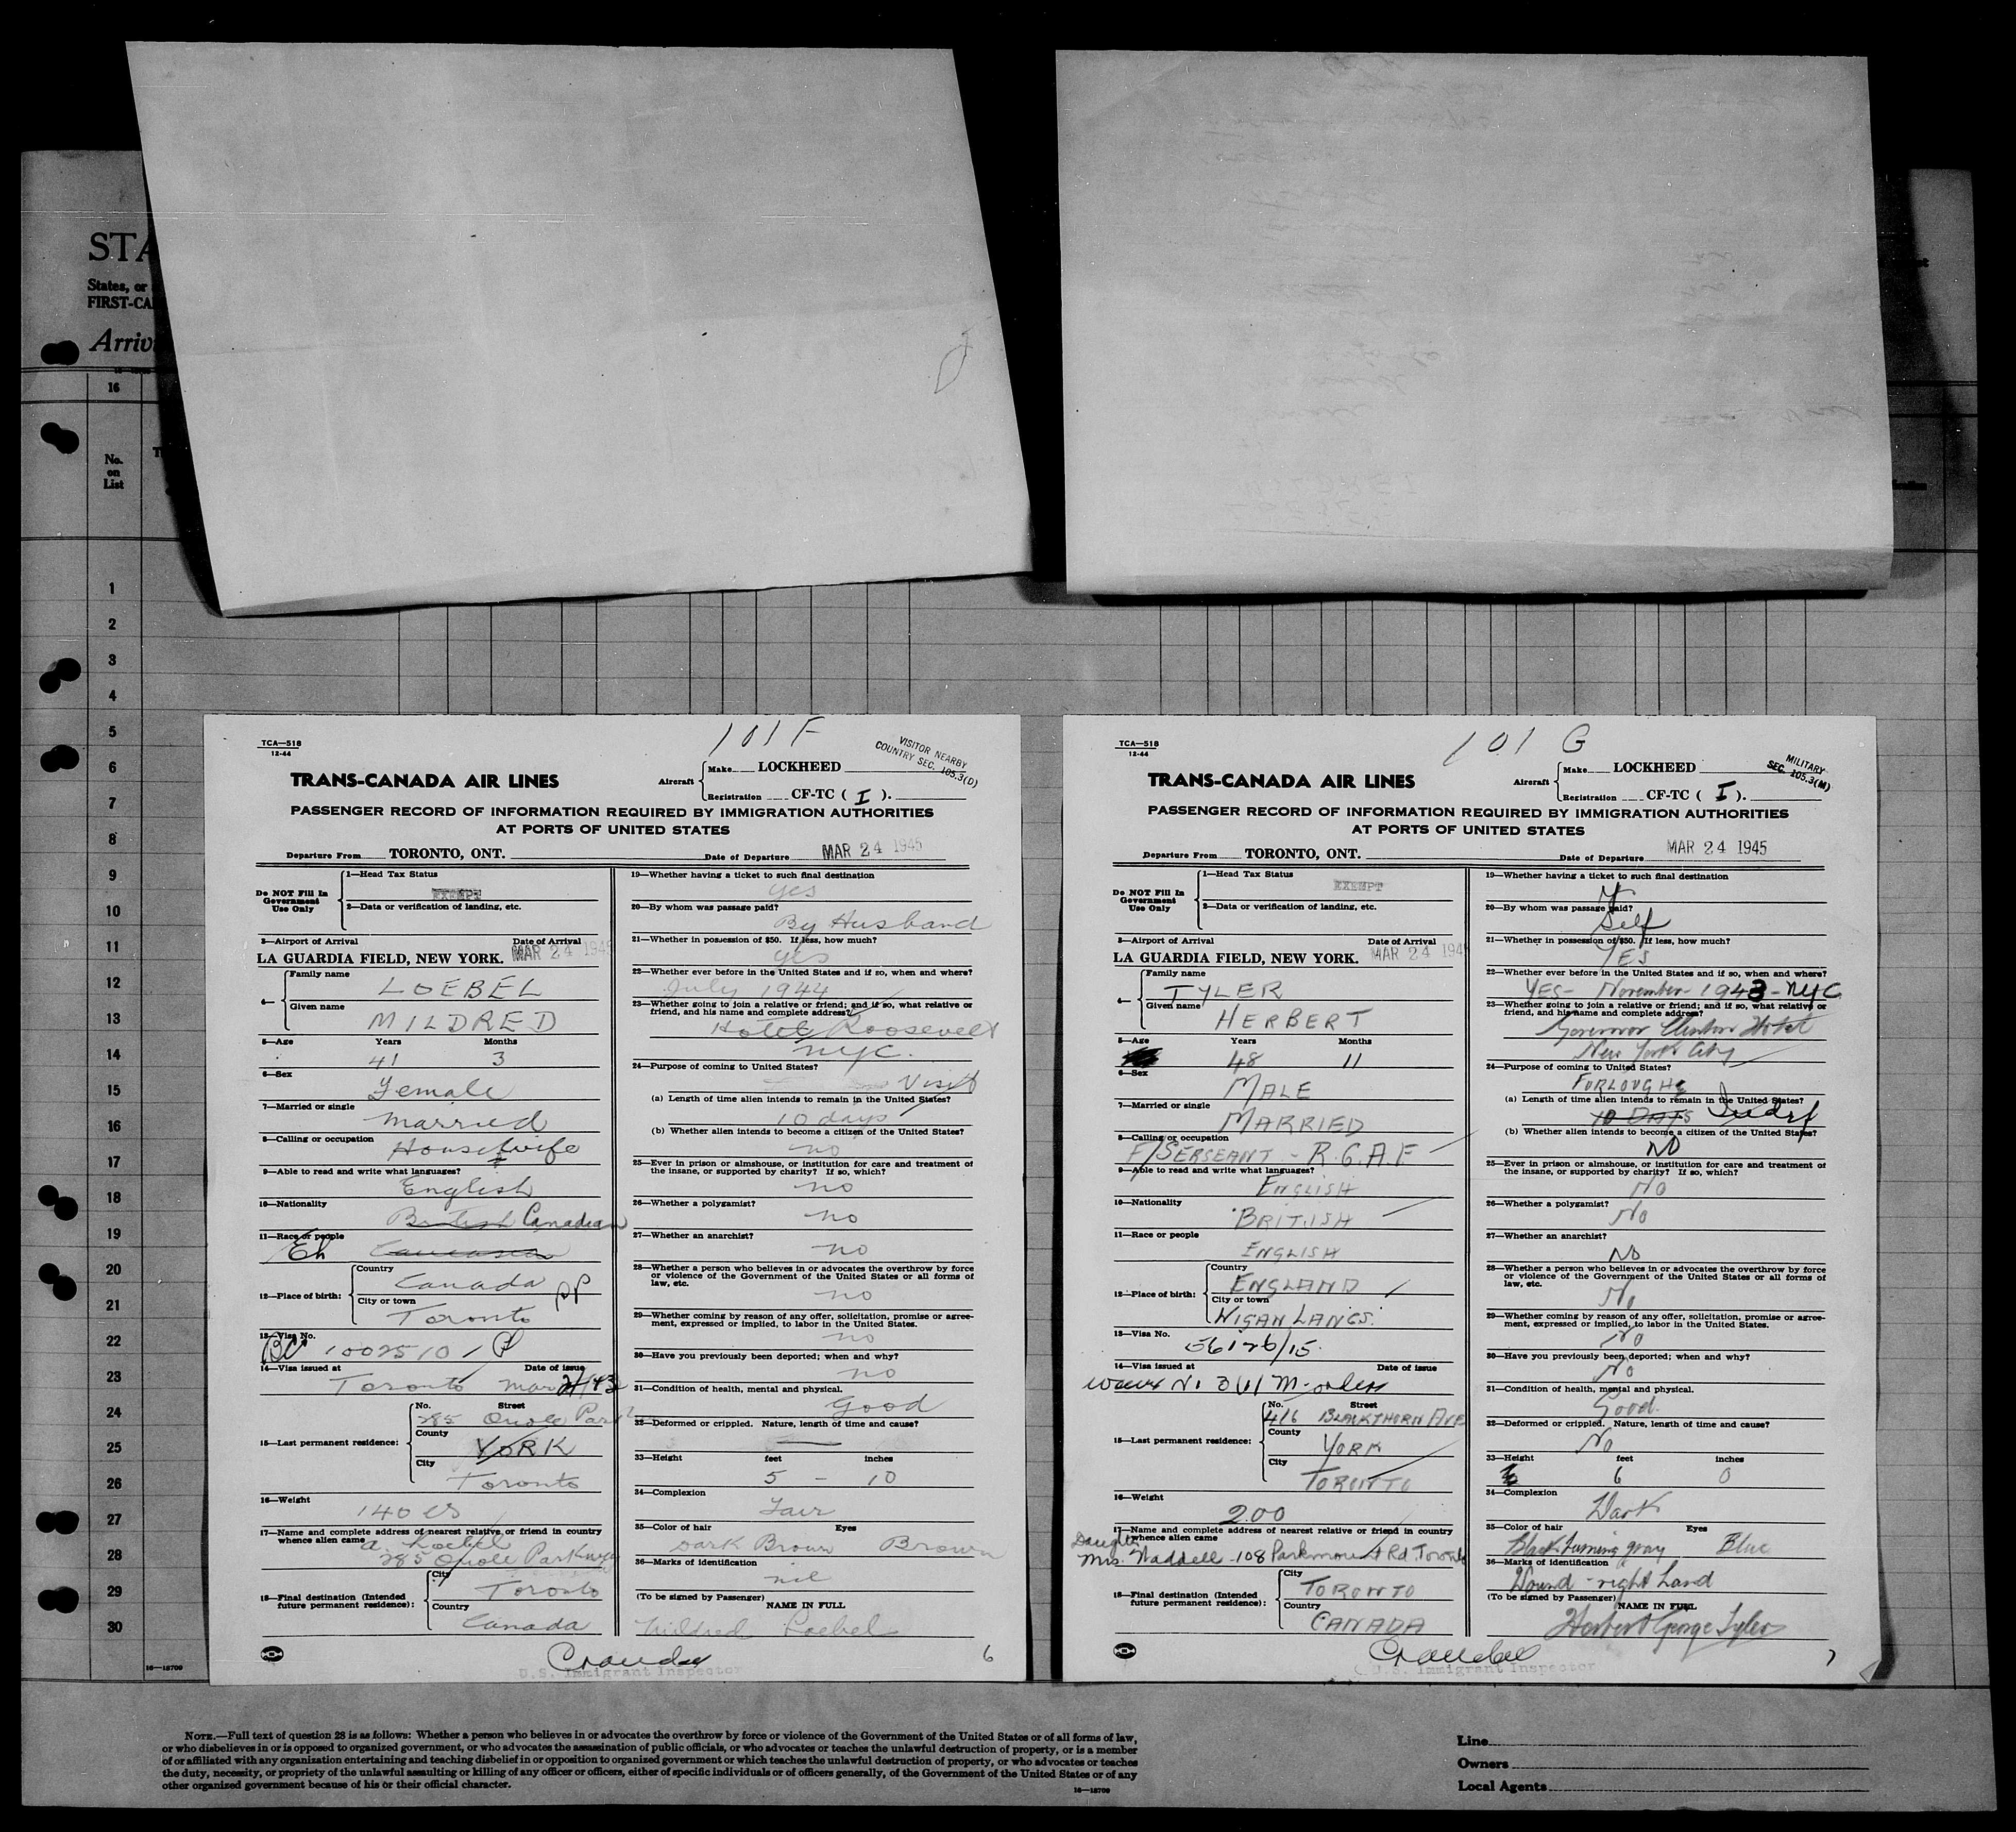 STA
States, or
FIRST-CA
Arriv
16
No.
on
List
1
2
3
4
5
6
7
8
9
10
11
12
13
14
15
16
17
18
19
20
21
22
23
24
25
26
27
28
29
30
16—18709
101 F
TCA—518
12-44
VISITOR NEARBY
COUNTRY SEC. 105.3(D)
TRANS-CANADA AIR LINES
Aircraft
Make LOCKHEED
Registration CF-TC ( I ).
PASSENGER RECORD OF INFORMATION REQUIRED BY IMMIGRATION AUTHORITIES
AT PORTS OF UNITED STATES
Departure From TORONTO, ONT. Date of Departure MAR 24 1945
Do NOT Fill In
Government
Use Only
1—Head Tax Status
EXEMPT
2—Data or verification of landing, etc.
3—Airport of Arrival Date of Arrival
LA GUARDIA FIELD, NEW YORK. MAR 24 194
4—
Family name
LOEBEL
Given name
MILDRED
5—Age Years Months
41 3
6—Sex
Female
7—Married or single
Married
8—Calling or occupation
Housewife
9—Able to read and write what languages?
English
10—Nationality
British Canadian
11—Race or people
Eh Caucasian
12—Place of birth:
Country
Canada
City or town
Toronto
13—Visa No.
BC 1002510
14—Visa issued at Date of issue
Toronto Mar 2/43
15—Last permanent residence:
No. Street
285 Oriole Park
County
YORK
City
Toronto
16—Weight
140
17—Name and complete address of nearest relative or friend in country
whence alien came
A. Loebel
285 Oriole Parkway
18—Final destination (Intended
future permanent residence):
City
Toronto
Country
Canada
19—Whether having a ticket to such final destination
yes
20—By whom was passage paid?
By Husband
21—Whether in possession of $50. If less, how much?
yes
22—Whether ever before in the United States and if so, when and where?
July 1944
23—Whether going to join a relative or friend; and if so, what relative or
friend, and his name and complete address?
Hotel Roosevelt
NYC.
24—Purpose of coming to United States?
Visit
(a) Length of time alien intends to remain in the United States?
10 days
(b) Whether alien intends to become a citizen of the United States?
no
25—Ever in prison or almshouse, or institution for care and treatment of
the insane, or supported by charity? If so, which?
no
26—Whether a polygamist?
no
27—Whether an anarchist?
no
28—Whether a person who believes in or advocates the overthrow by force
or violence of the Government of the United States or all forms of
law, etc.
no
29—Whether coming by reason of any offer, solicitation, promise or agree-
ment, expressed or implied, to labor in the United States.
no
30—Have you previously been deported; when and why?
no
31—Condition of health, mental and physical.
Good
32—Deformed or crippled. Nature, length of time and cause?
33—Height feet inches
5 - 10
34—Complexion
Fair
35—Color of hair Eyes
Dark Brown Brown
36—Marks of identification
nil
(To be signed by Passenger)
NAME IN FULL
Mildred Loebel
U.S. Immigrant Inspector
6
101 G
TCA—518
12-44
MILITARY
SEC. 105.3(M)
TRANS-CANADA AIR LINES
Aircraft
Make LOCKHEED
Registration CF-TC ( I ).
PASSENGER RECORD OF INFORMATION REQUIRED BY IMMIGRATION AUTHORITIES
AT PORTS OF UNITED STATES
Departure From TORONTO, ONT. Date of Departure MAR 24 1945
Do NOT Fill In
Government
Use Only
1—Head Tax Status
EXEMPT
2—Data or verification of landing, etc.
3—Airport of Arrival Date of Arrival
LA GUARDIA FIELD, NEW YORK. MAR 24 194
4—
Family name
TYLER
Given name
HERBERT
5—Age Years Months
48 11
6—Sex
MALE
7—Married or single
MARRIED
8—Calling or occupation
F/SERGEANT - R.C.A.F
9—Able to read and write what languages?
ENGLISH
10—Nationality
BRITISH
11—Race or people
ENGLISH
12—Place of birth:
Country
ENGLAND
City or town
WIGAN LANCS.
13—Visa No.
14—Visa issued at Date of issue
15—Last permanent residence:
No. Street
416 BLACKTHORN AVE
County
YORK
City
TORONTO
16—Weight
200
17—Name and complete address of nearest relative or friend in country
whence alien came
Daughter
Mrs. Waddell - 108 Parkmount Rd. Toronto
18—Final destination (Intended
future permanent residence):
City
TORONTO
Country
CANADA
19—Whether having a ticket to such final destination
Y
20—By whom was passage paid?
Self
21—Whether in possession of $50. If less, how much?
YES
22—Whether ever before in the United States and if so, when and where?
YES - November 1943 - NYC
23—Whether going to join a relative or friend; and if so, what relative or
friend, and his name and complete address?
Governor Clinton Hotel
New York City
24—Purpose of coming to United States?
FURLOUGH
(a) Length of time alien intends to remain in the United States?
10 DAYS
(b) Whether alien intends to become a citizen of the United States?
NO
25—Ever in prison or almshouse, or institution for care and treatment of
the insane, or supported by charity? If so, which?
No
26—Whether a polygamist?
No
27—Whether an anarchist?
No
28—Whether a person who believes in or advocates the overthrow by force
or violence of the Government of the United States or all forms of
law, etc.
No
29—Whether coming by reason of any offer, solicitation, promise or agree-
ment, expressed or implied, to labor in the United States.
No
30—Have you previously been deported; when and why?
No
31—Condition of health, mental and physical.
Good.
32—Deformed or crippled. Nature, length of time and cause?
No
33—Height feet inches
6 0
34—Complexion
Dark
35—Color of hair Eyes
Black turning gray Blue
36—Marks of identification
Wound - right hand
(To be signed by Passenger)
NAME IN FULL
Herbert George Tyler
U.S. Immigrant Inspector
7
NOTE.—Full text of question 28 is as follows: Whether a person who believes in or advocates the overthrow by force or violence of the Government of the United States or of all forms of law,
or who disbelieves in or is opposed to organized government, or who advocates the assassination of public officials, or who advocates or teaches the unlawful destruction of property, or is a member
of or affiliated with any organization entertaining and teaching disbelief in or opposition to organized government or which teaches the unlawful destruction of property, or who advocates or teaches
the duty, necessity, or propriety of the unlawful assaulting or killing of any officer or officers, either of specific individuals or of officers generally, of the Government of the United States or of any
other organized government because of his or their official character.
16—18709
Line
Owners
Local Agents